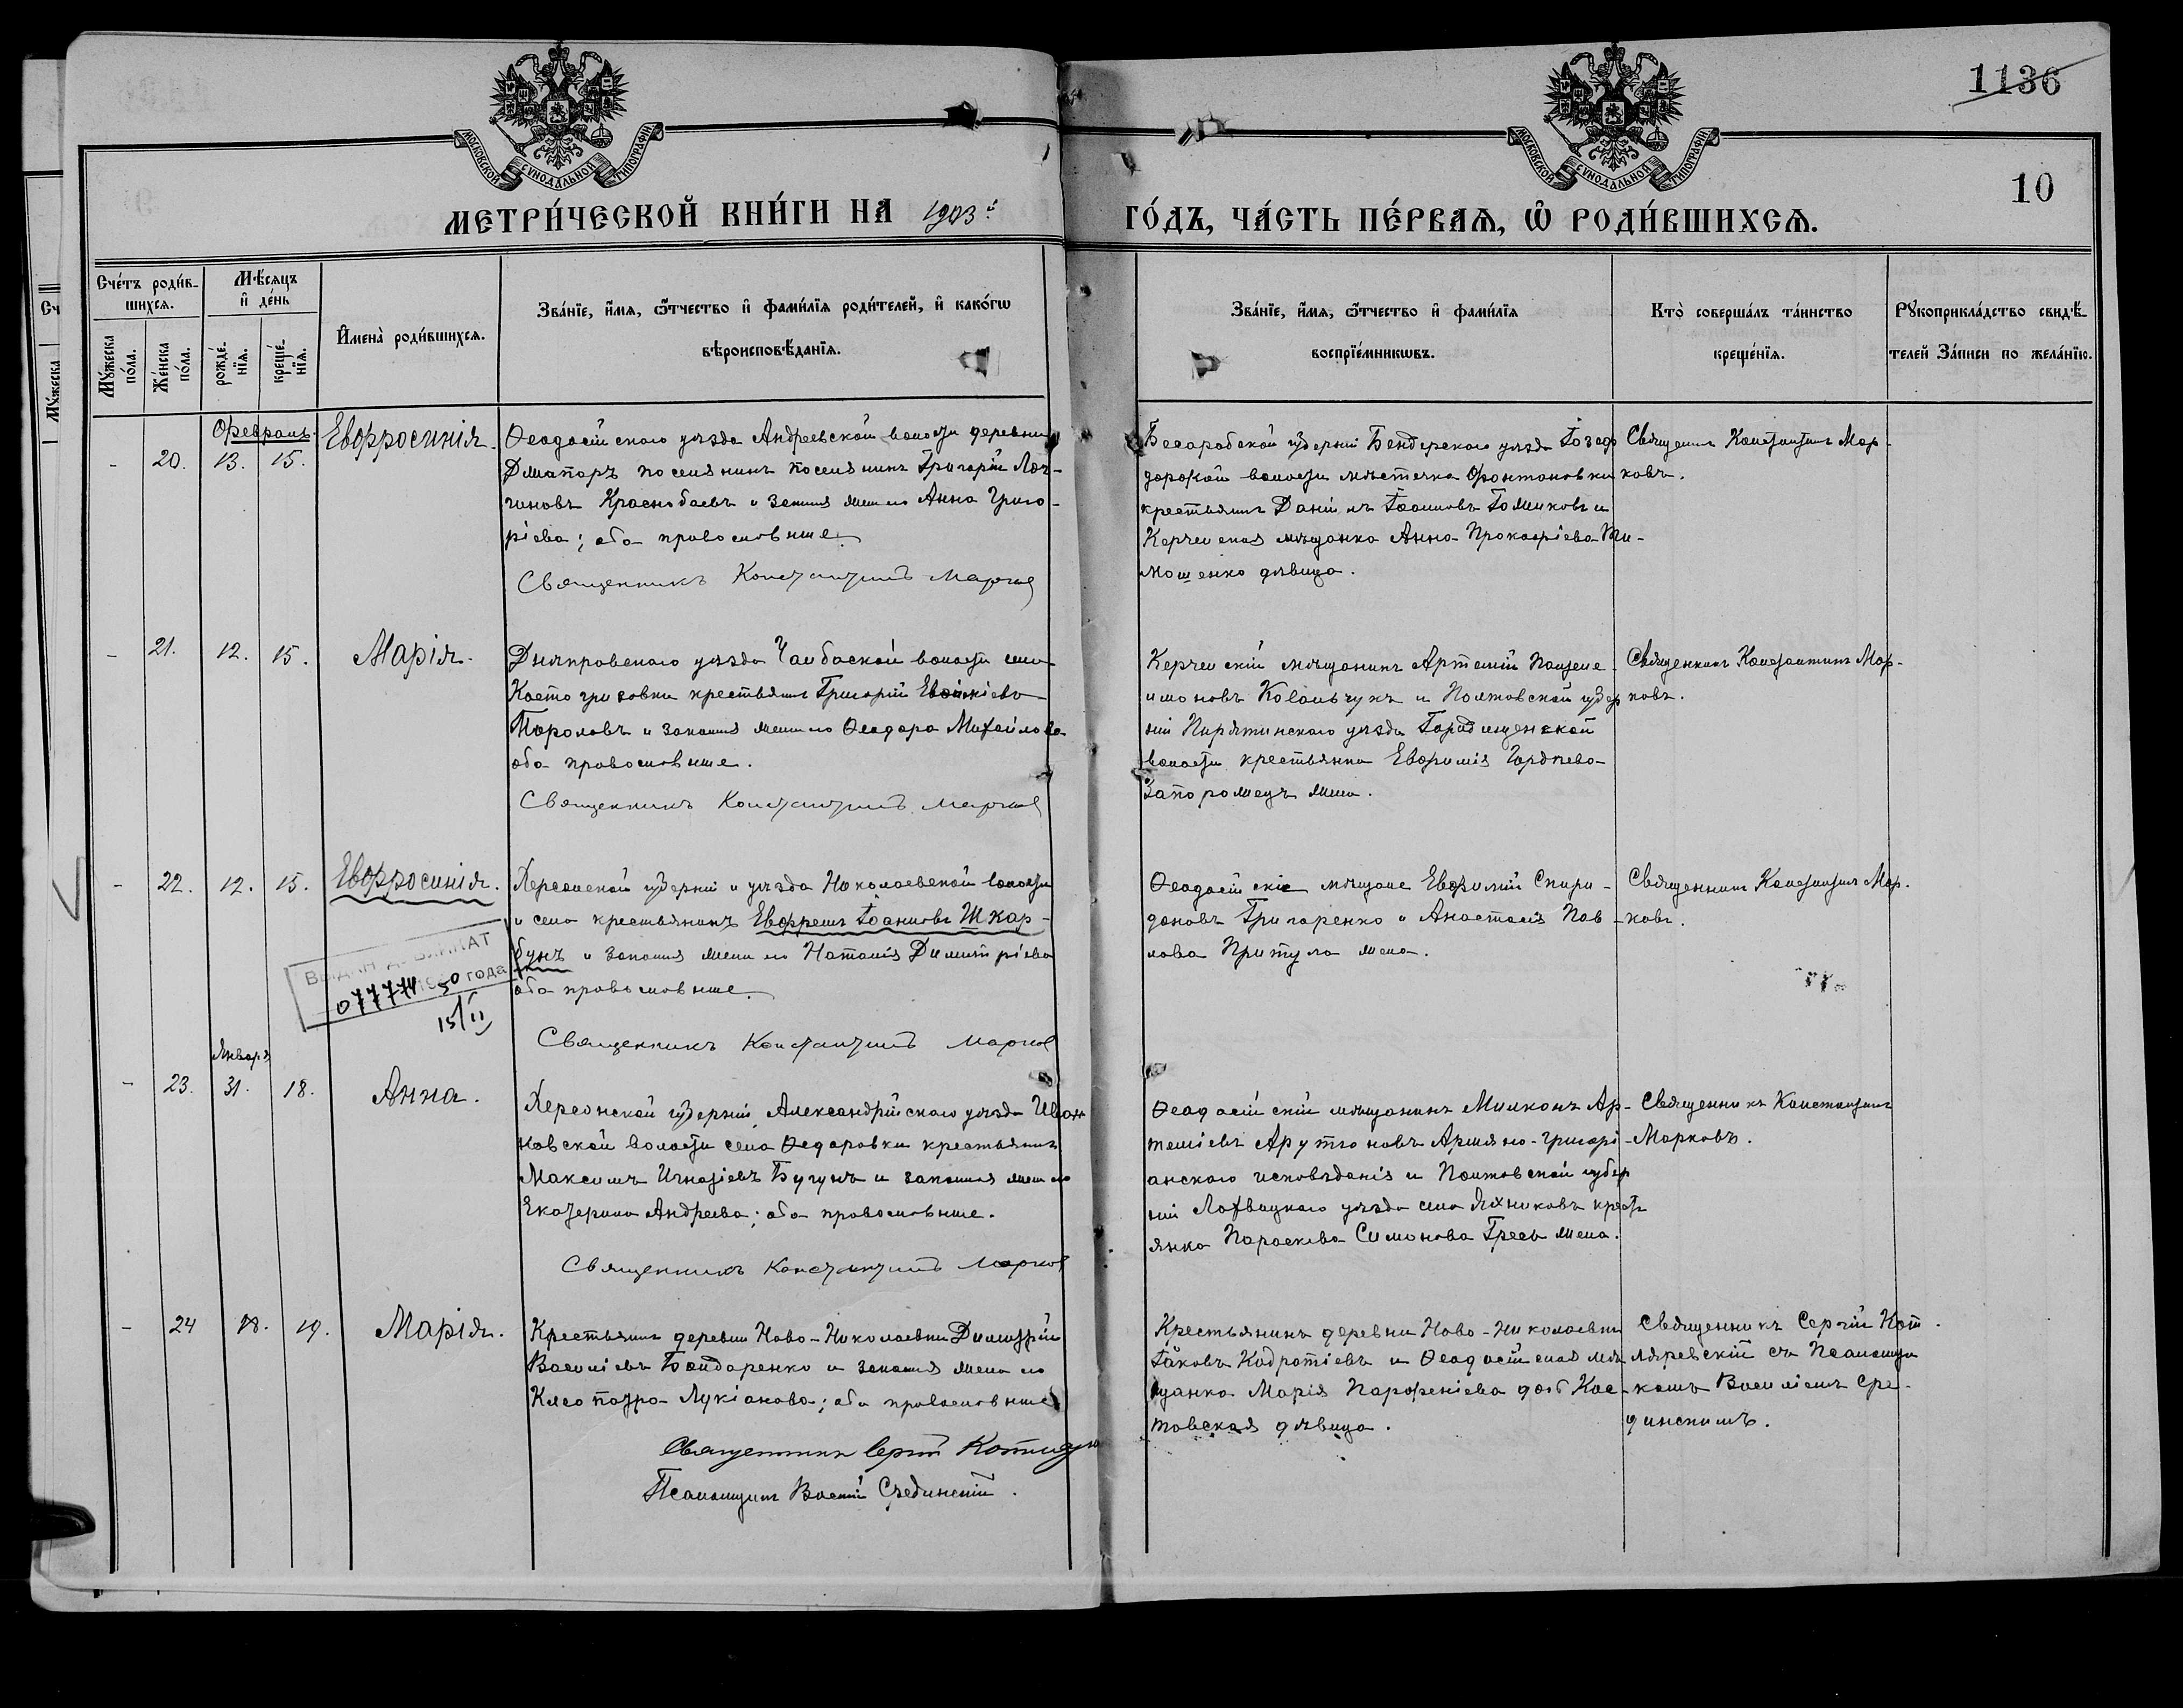 1136
10
МОСКОВСКОЙ СУНОДАЛЬНОЙ ТИПОГРАФІИ
МОСКОВСКОЙ СУНОДАЛЬНОЙ ТИПОГРАФІИ
МЕТРИ́ЧЕСКОЙ КНИ́ГИ НА 1903й
ГО́ДЪ, ЧА́СТЬ ПЕ́РВАѦ, Ѡ҆ РОДИ́ВШИХСѦ.
Сч
Мꙋ́жеска
Сче́тъ роди́в-
шихсѧ.
Мꙋ́жеска по́ла.
Же́нска по́ла.
Мѣ́сѧцъ
и҆ де́нь
рожде́-нїѧ.
креще́-нїѧ.
И҆мена̀ роди́вшихсѧ.
Зва́нїе, и҆́мѧ, ѻ҆́тчество и҆ фами́лїѧ роди́телей, и҆ како́гѡ
вѣроисповѣ́данїѧ.
Зва́нїе, и҆́мѧ, ѻ҆́тчество и҆ фами́лїѧ
воспрїе́мникѡвъ.
Кто̀ соверша́лъ та́инство
креще́нїѧ.
Рꙋкоприкла́дство свидѣ́-
телей За́писи по жела́нїю.
Февраль.
- 20. 13. 15. Евфросинія.
Ѳеодосійскаго уѣзда Андреевской волости деревни
поселянинъ поселянинъ Григорій
Краснобаевъ и законная жена его Анна Григо-
ріева; оба православные.
Священникъ Константинъ Марковъ
Бесарабской губерніи Бендерскаго уѣзда
волости мѣстечка Фонтановки
крестьянинъ Даніилъ Іоанновъ и
Керченская мѣщанка Анна Прокофіева Ти-
мошенко дѣвица.
Священникъ Константинъ Мар-
ковъ.
- 21. 12. 15. Марія.
Днѣпровскаго уѣзда Чалбаской волости села
Костогризовки крестьянинъ Григорій
и законная жена его Ѳеодора Михайлова
оба православные.
Священникъ Константинъ Марковъ
Керченскій мѣщанинъ Артемій Пантеле-
имоновъ Ковальчукъ и Полтавской губер
ніи Пирятинскаго уѣзда Городищенской
волости крестьянка Евфимія Гордѣева
Запорожецъ жена.
Священникъ Константинъ Мар-
ковъ.
- 22. 12. 15. Евфросинія.
Херсонской губерніи и уѣзда Николаевской волости
и села крестьянинъ Евфремъ Іоанновъ Шкар-
бунъ и законная жена его Наталія Димитріева
оба православные.
Священникъ Константинъ Марковъ
ВЫДАН ДУБЛИКАТ
077774 1950 года
15/II
Ѳеодосійскіе мѣщане Евфимій Спири-
доновъ Григоренко и Анастасія Пав-
лова Притула жена.
Священникъ Константинъ Мар-
ковъ.
Января
- 23. 31. 18. Анна.
Херсонской губерніи Александрійскаго уѣзда Иван
ковской волости села Ѳедоровки крестьянинъ
Максимъ Игнатіевъ Бугунъ и законная жена его
Екатерина Андреева; оба православные.
Священникъ Константинъ Марковъ
Ѳеодосійскій мѣщанинъ Милконъ Ар-
теміевъ Арутюновъ Армяно-григорі-
анскаго исповѣданія и Полтавской губер
ніи Лохвицкаго уѣзда села Яхниковъ кресть
янка Параскева Симонова Гресь жена.
Священникъ Константинъ
Марковъ.
- 24 18. 19. Марія.
Крестьянинъ деревни Ново-Николаевки Димитрій
Василіевъ Бондаренко и законная жена его
Клеопатра Лукіанова; оба православные
Священникъ Сергій
Псаломщикъ Василій Срединскій.
Крестьянинъ деревни Ново-Николаевки
Іаковъ Кодратіевъ и Ѳеодосійская мѣ
щанка Марія Парфеніева
товская дѣвица.
Священникъ Сергій Кот-
ляревскій съ Псаломщи
комъ Василіемъ Сре-
динскимъ.